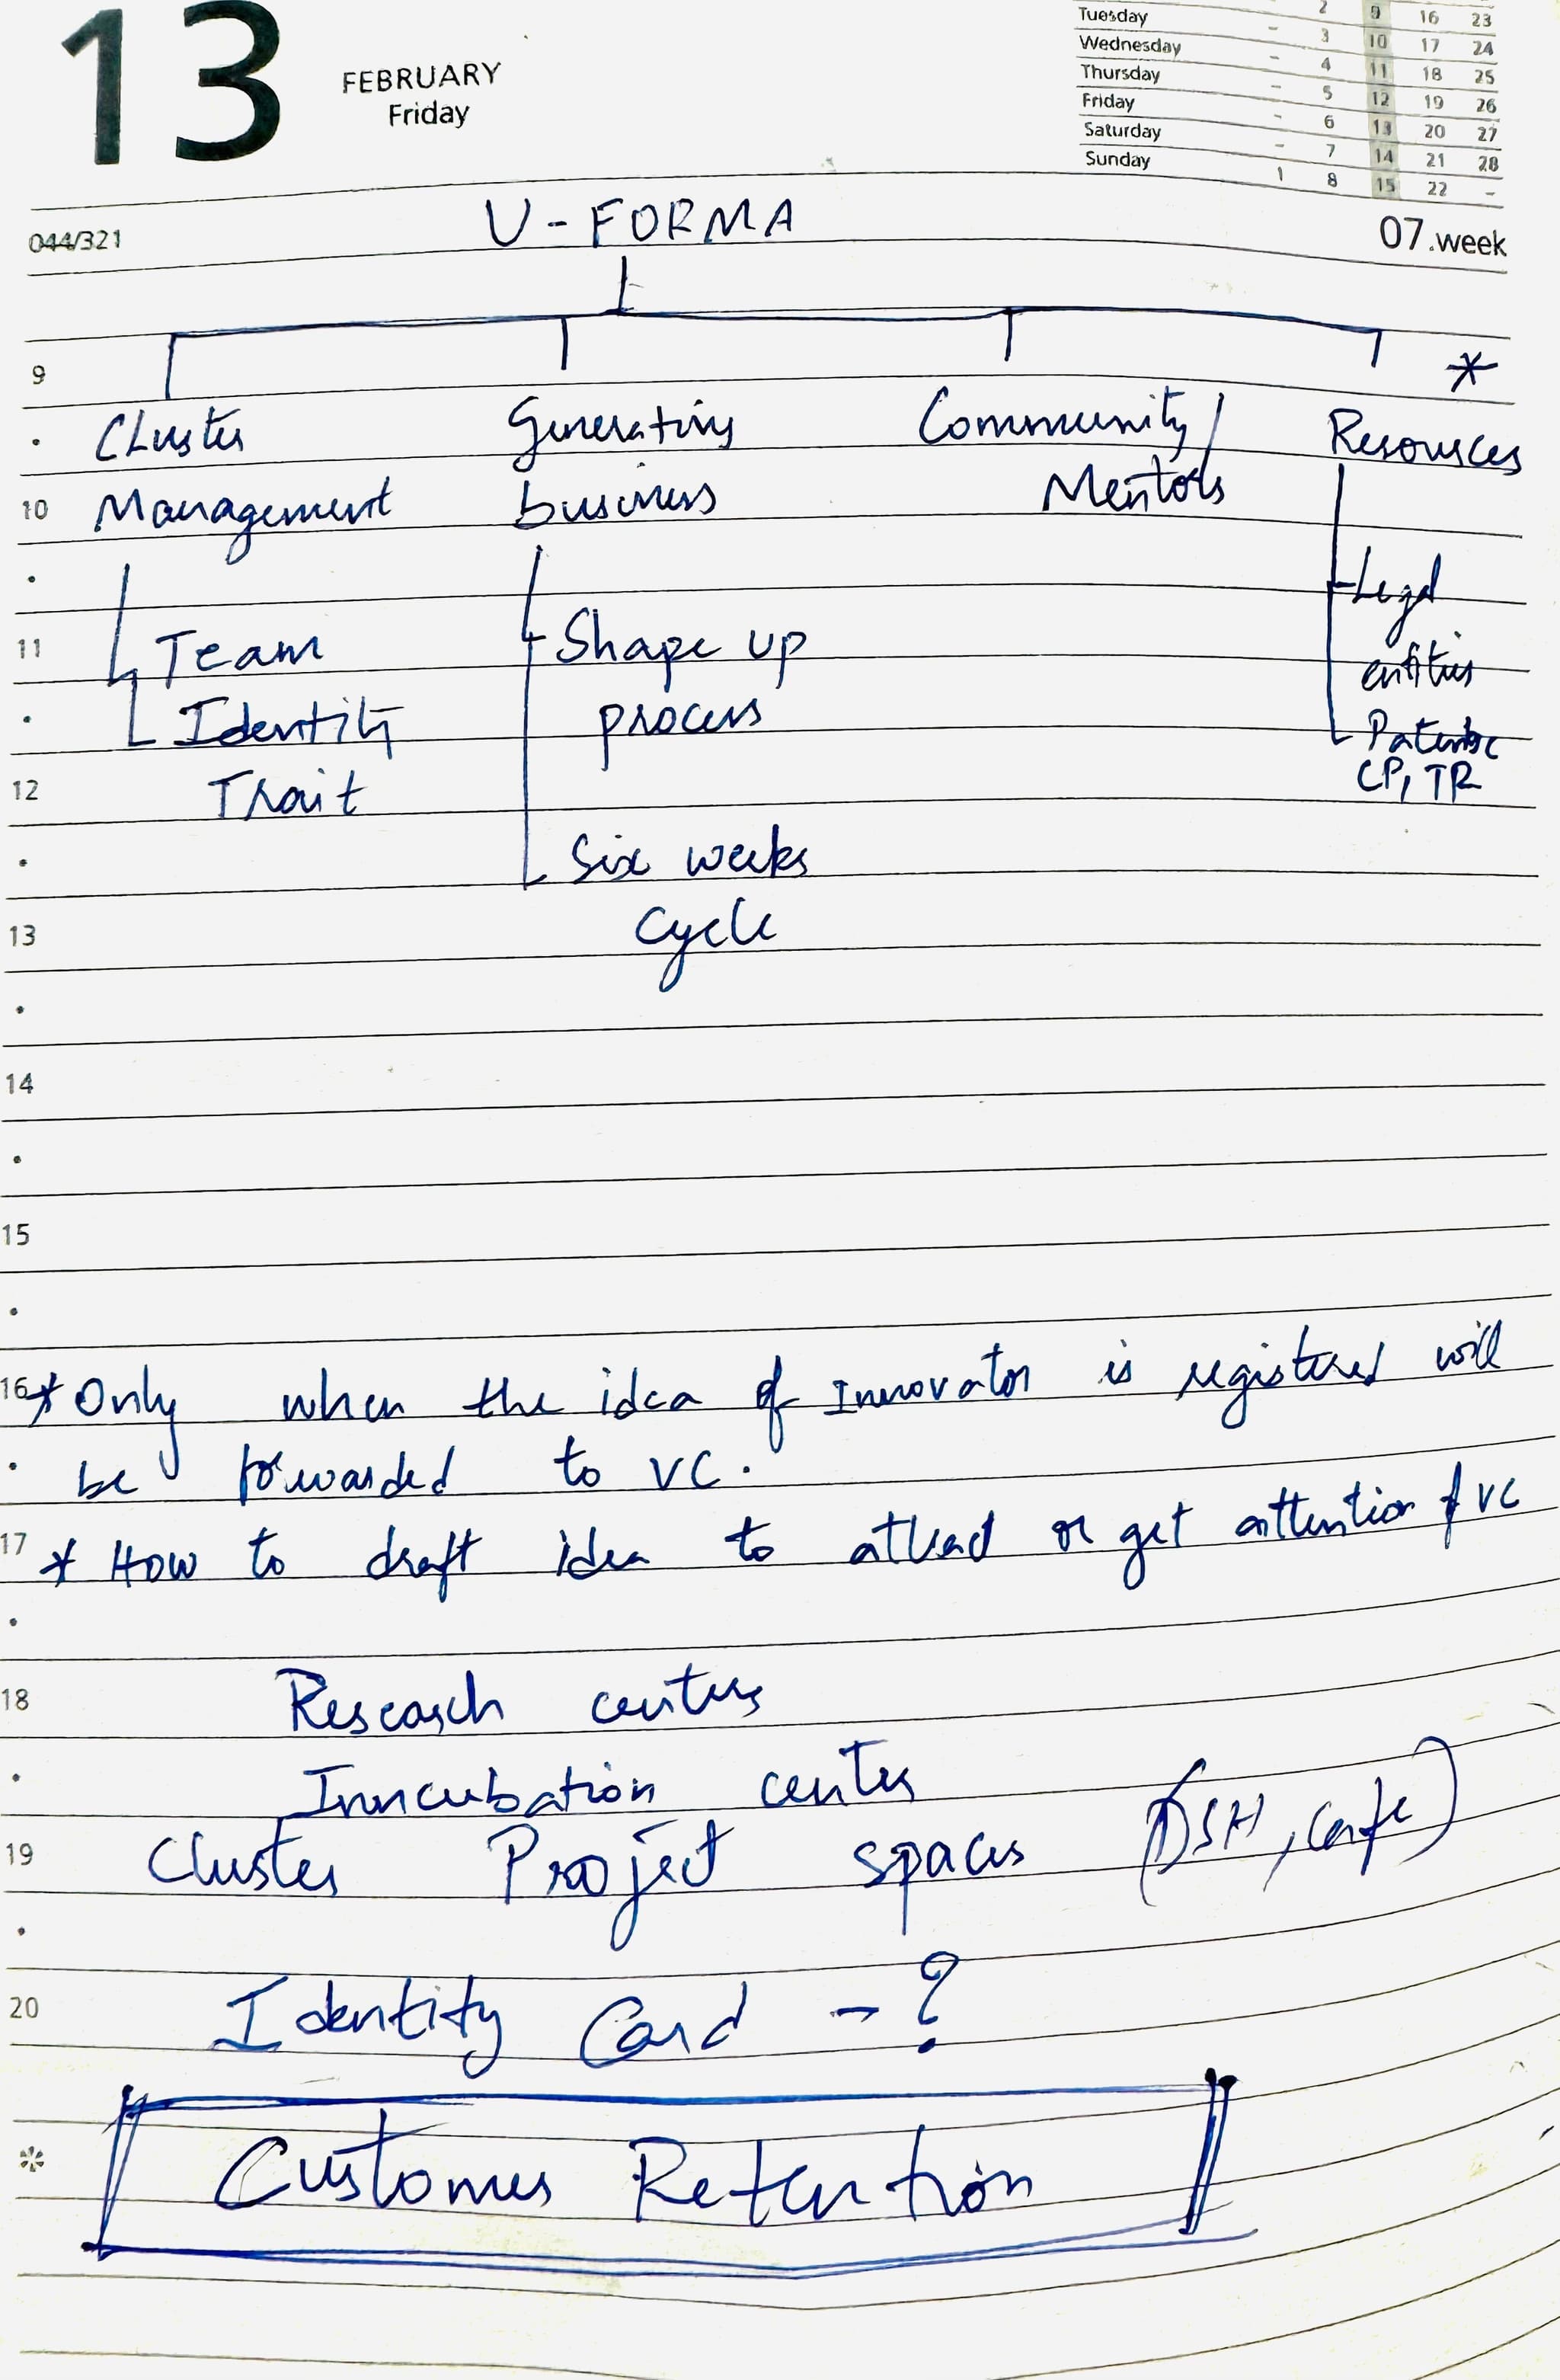 13
FEBRUARY
Friday
2 9 16 23
Tuesday - 3 10 17 24
Wednesday - 4 11 18 25
Thursday - 5 12 19 26
Friday - 6 13 20 27
Saturday - 7 14 21 28
Sunday 1 8 15 22 -
044/321
07.week
U - FORMA
9
*
Cluster Generating Community/ Resources
10 Management business Mentors
Legal
11 Team Shape up
entities
Identity process
12 Trait
CP, TR
Six weeks
13 Cycle
14
15
16 * Only when the idea of Innovator is registered will
be forwarded to VC.
17 * How to draft idea to attract or get attention of VC
18 Research centers
Inncubation center
19 Cluster Project spaces (DSH,
20 Identity Card - ?
Customer Retention